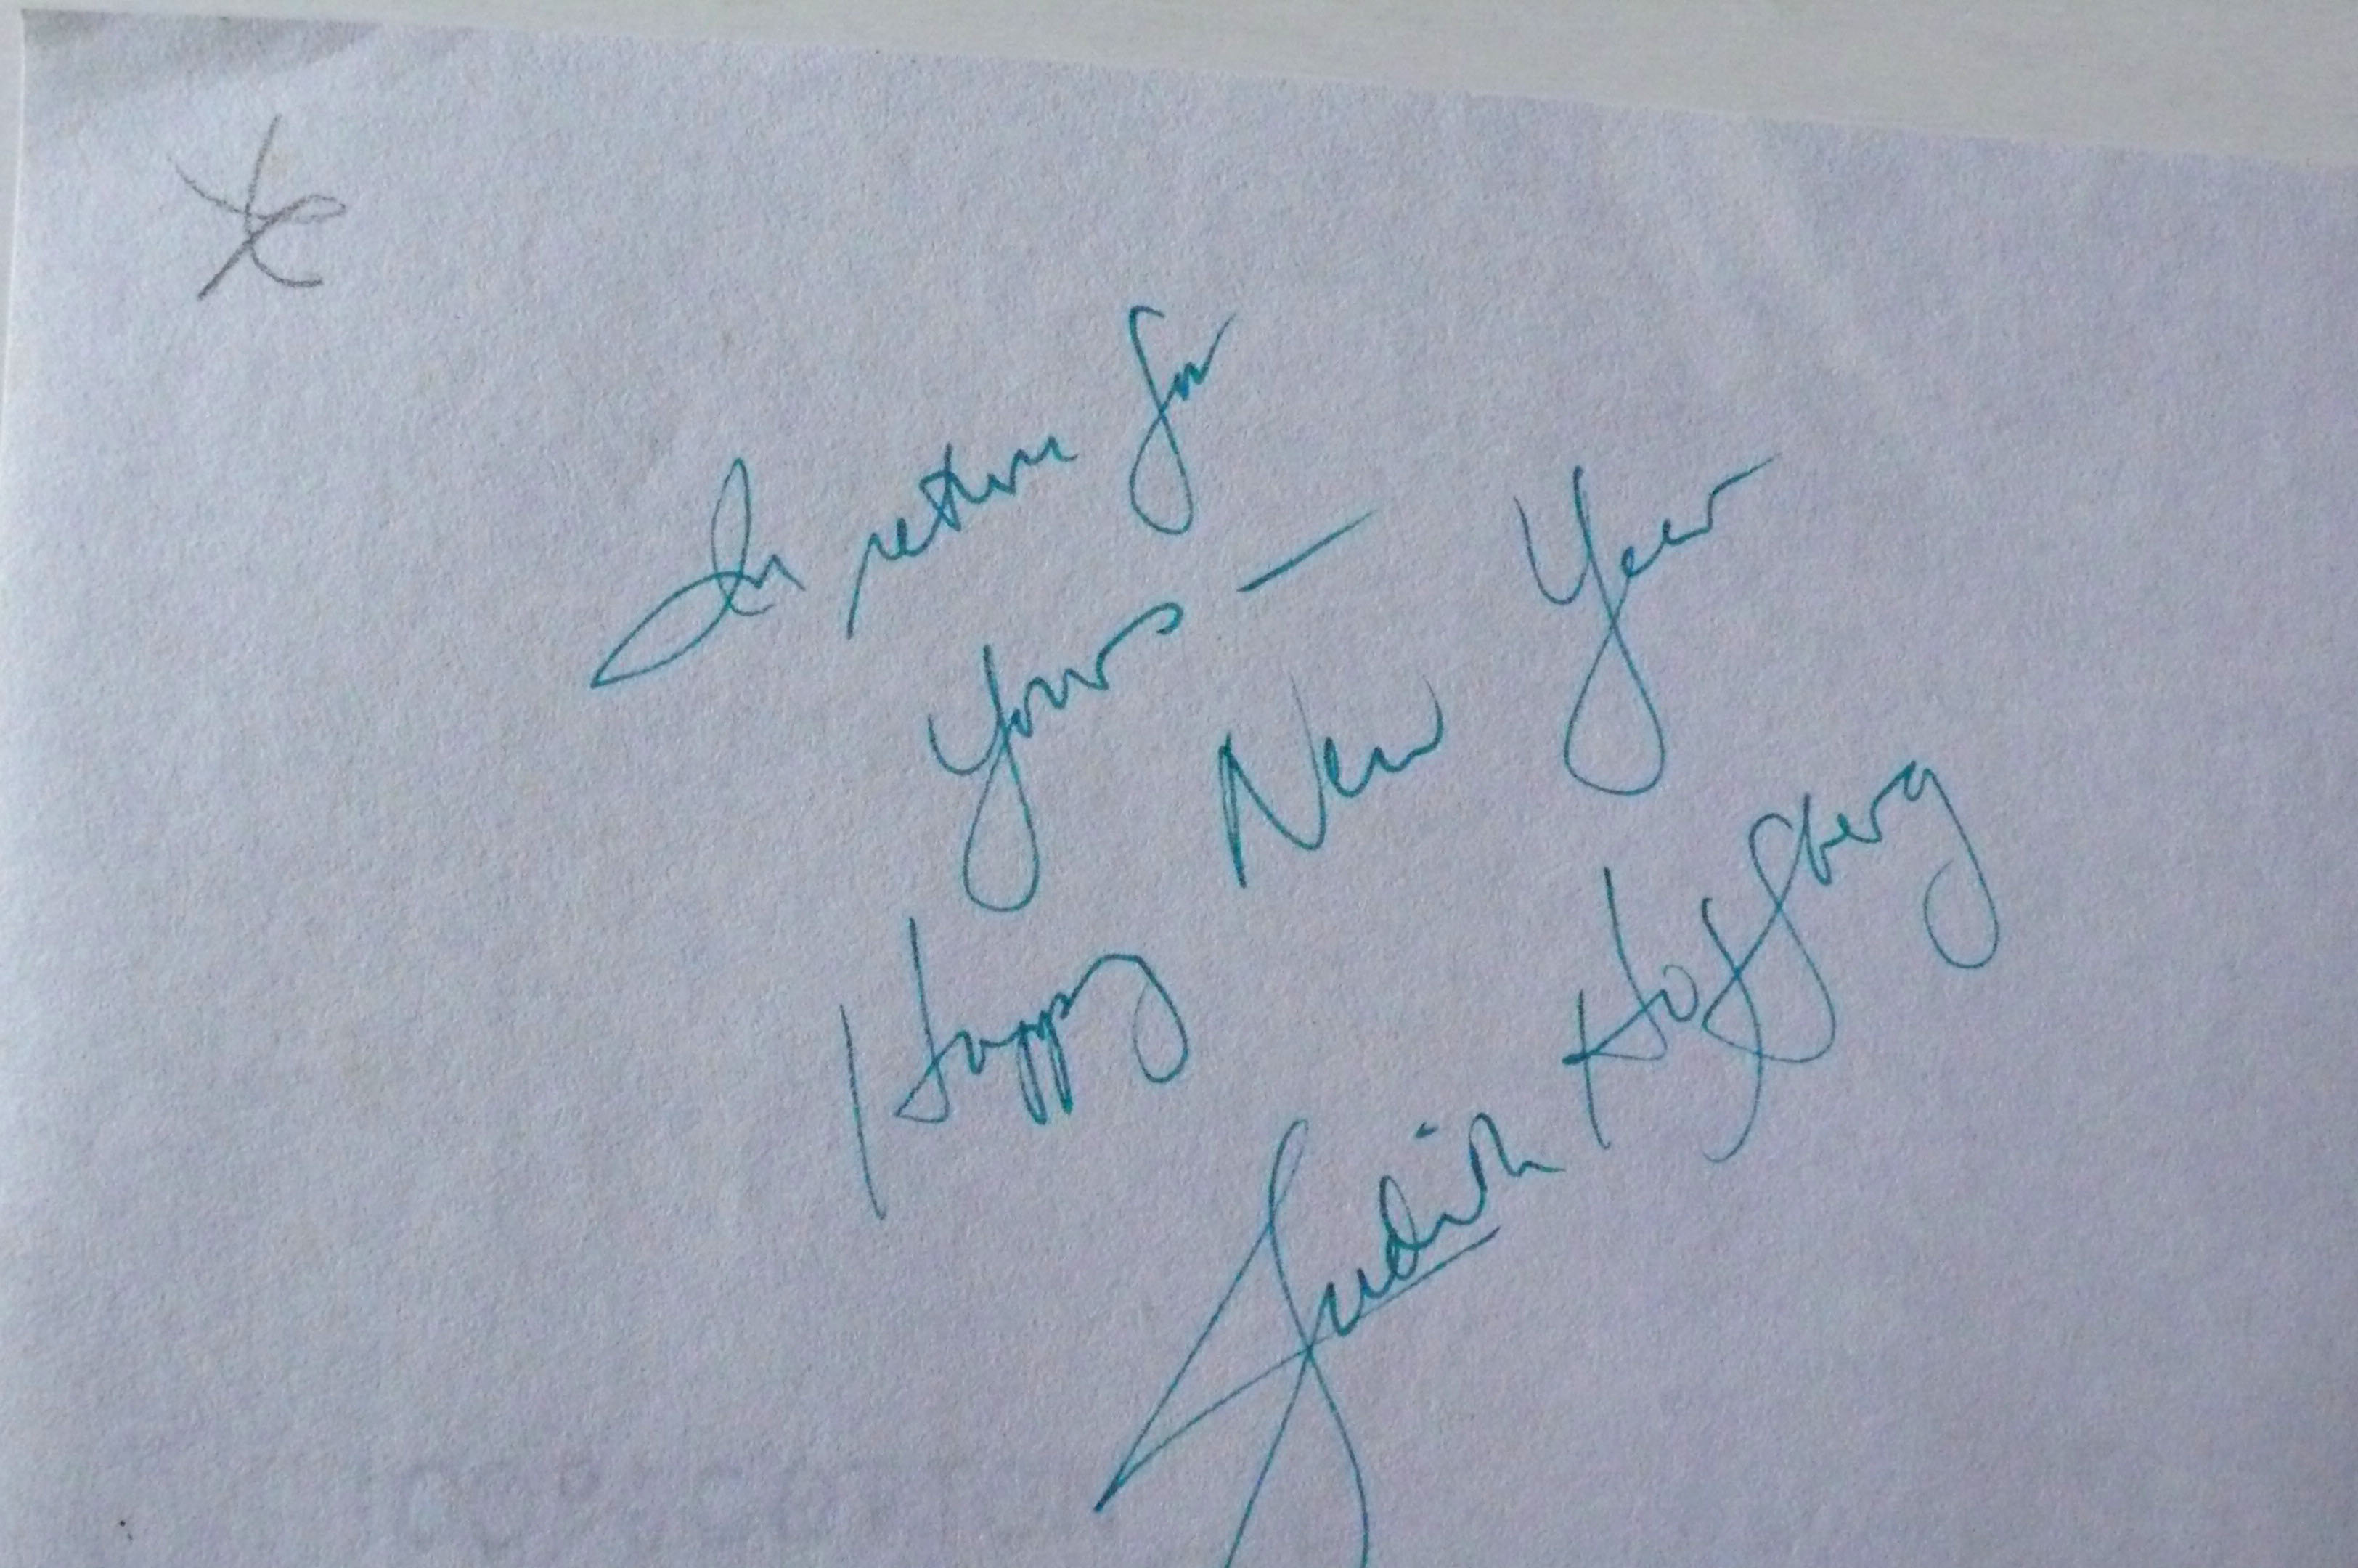 In return for
yours —
Happy New Year
Judith Hoffberg